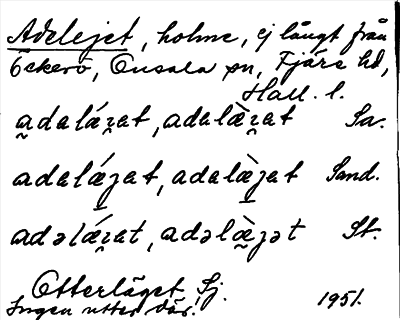 Adelejet, holme, ej långt från
Öckerö, Onsala sn, Fjäre hd,
Hall. l.
a̰dalǽʒ̭at, adalæ̀ʒ̭at Sa.
adalǽʒat, adalæ̀ʒat Sand.
adəlǽʒ̭at, adəlæ̰̀ʒət St.
Otterläget, Sj.
Ingen utter där. 1951.